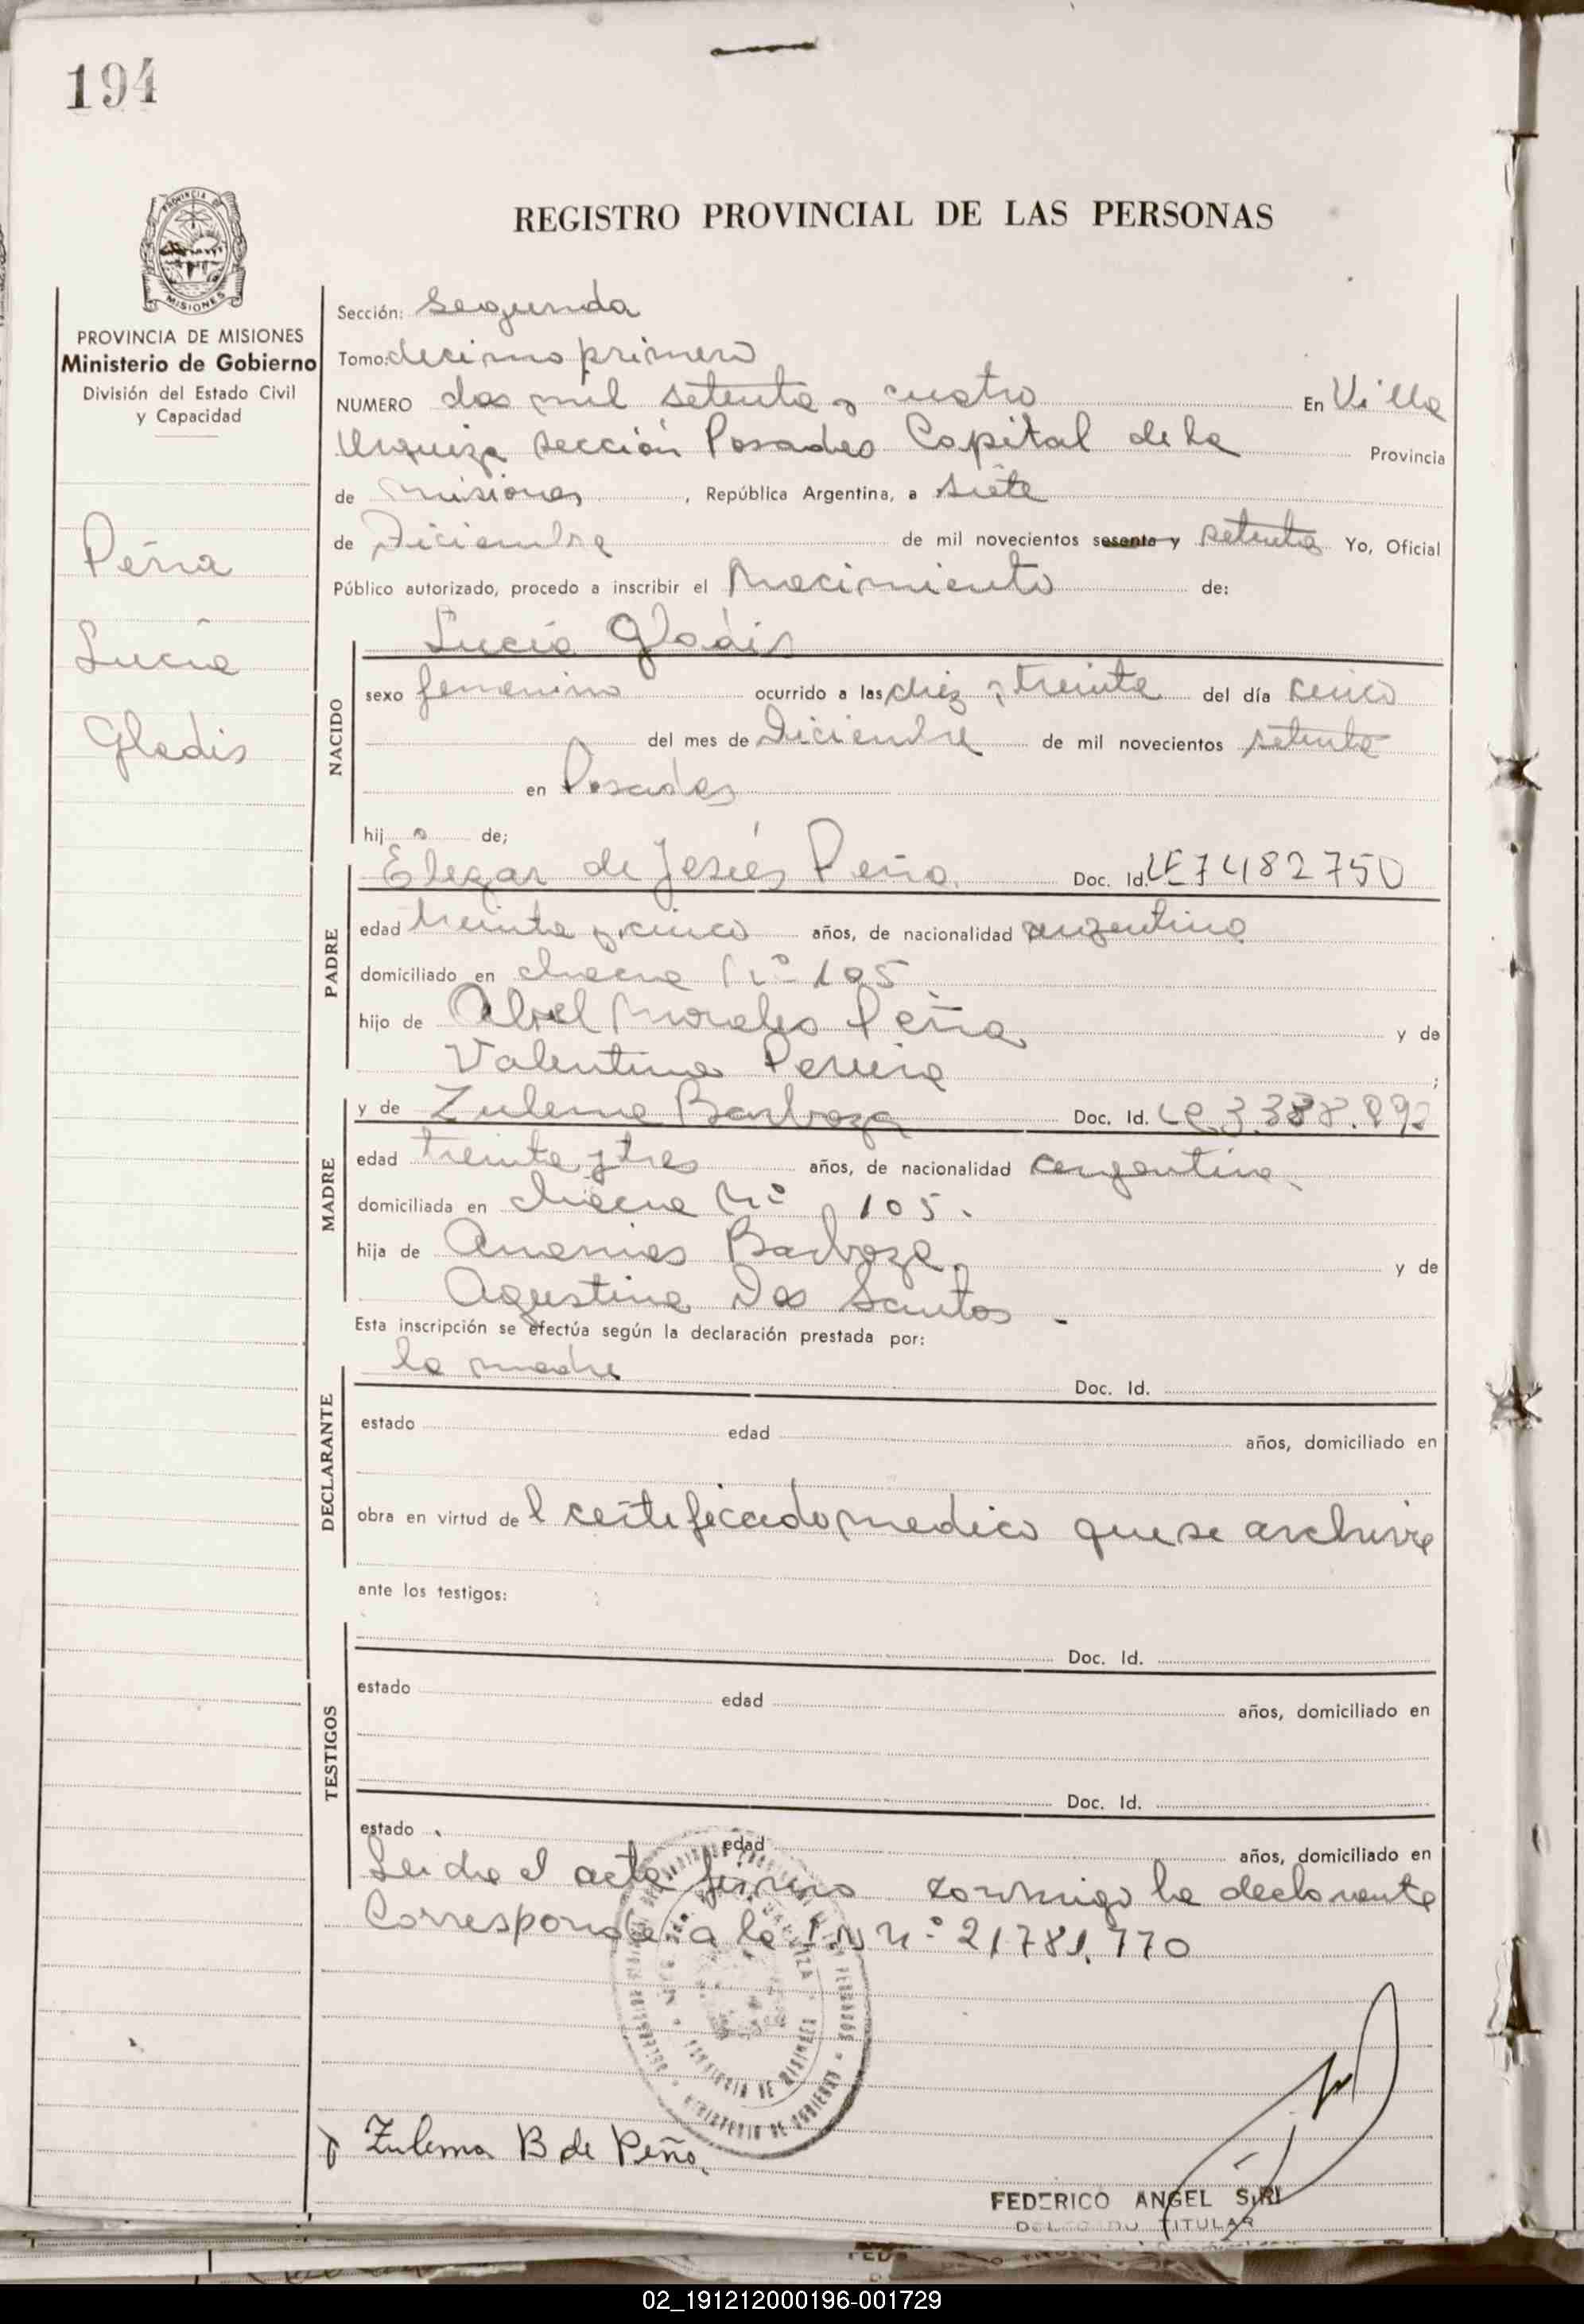 194
PROVINCIA
MISIONES
REGISTRO PROVINCIAL DE LAS PERSONAS
PROVINCIA DE MISIONES
Ministerio de Gobierno
División del Estado Civil
y Capacidad
Peña
Lucía
Gladis
Sección: Segunda
Tomo: decimo primero
NUMERO dos mil setenta y cuatro En Villa
Urquiza sección Posadas Capital de la Provincia
de Misiones, República Argentina, a siete
de Diciembre de mil novecientos sesenta y setenta Yo, Oficial
Público autorizado, procedo a inscribir el Nacimiento de:
NACIDO
Lucía Gladis
sexo femenino ocurrido a las diez y treinta del día cinco
del mes de Diciembre de mil novecientos setenta
en Posadas
hij a de;
PADRE
Elegar de Jesús Peña. Doc. Id. LE 7482750
edad treinta y cinco años, de nacionalidad argentina
domiciliado en chacra Nº 105
hijo de Abel Morales Peña y de
Valentina Pereira ;
MADRE
y de Zulema Barboza Doc. Id. LC 3.388.892
edad treinta y tres años, de nacionalidad argentina
domiciliada en chacra Nº 105.
hija de Ananias Barboza y de
Agustina Dos Santos
Esta inscripción se efectúa según la declaración prestada por:
DECLARANTE
la madre Doc. Id.
estado edad años, domiciliado en
obra en virtud de l certificado medico que se archiva
ante los testigos:
TESTIGOS
Doc. Id.
estado edad años, domiciliado en
Doc. Id.
estado edad años, domiciliado en
Leida el acta firma conmigo la declarante
Corresponde a la I N nº 21781.770
PROVINCIA DE MISIONES
MINISTERIO DE GOBIERNO
Zulema B de Peña.
FEDERICO ANGEL SIRI
DELEGADO TITULAR
02_191212000196-001729